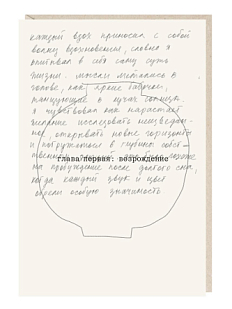 каждый вдох приносил с собой
волну вдохновения, словно я
впитывал в себя саму суть
жизни. мысли метались в
голове, как яркие бабочки,
танцующие в лучах солнца.
я чувствовал как нарастает
желание исследовать неизведан-
ное, открывать новые горизонты
и погружаться в глубины собст-
глава первая: возрождение
на пробуждение после долгого сна,
когда каждый звук и цвет
обрели особую значимость